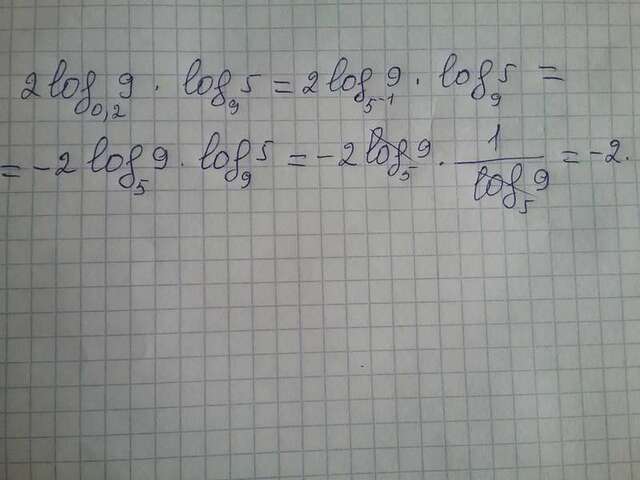 2log₀,₂ 9 · log₉ 5 = 2log₅₋₁ 9 · log₉ 5 =
= -2 log₅ 9 · log₉ 5 = -2 log₅ 9 · 1/log₅ 9 = -2.